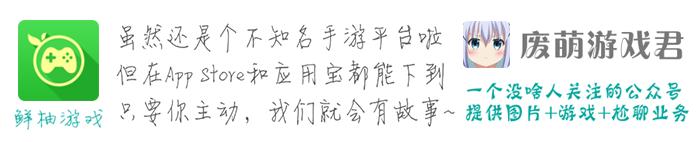 虽然还是个不知名手游平台啦
但在App Store和应用宝都能下到
只要你主动，我们就会有故事~
鲜柚游戏
废萌游戏君
一个没啥人关注的公众号
提供图片+游戏+尬聊业务